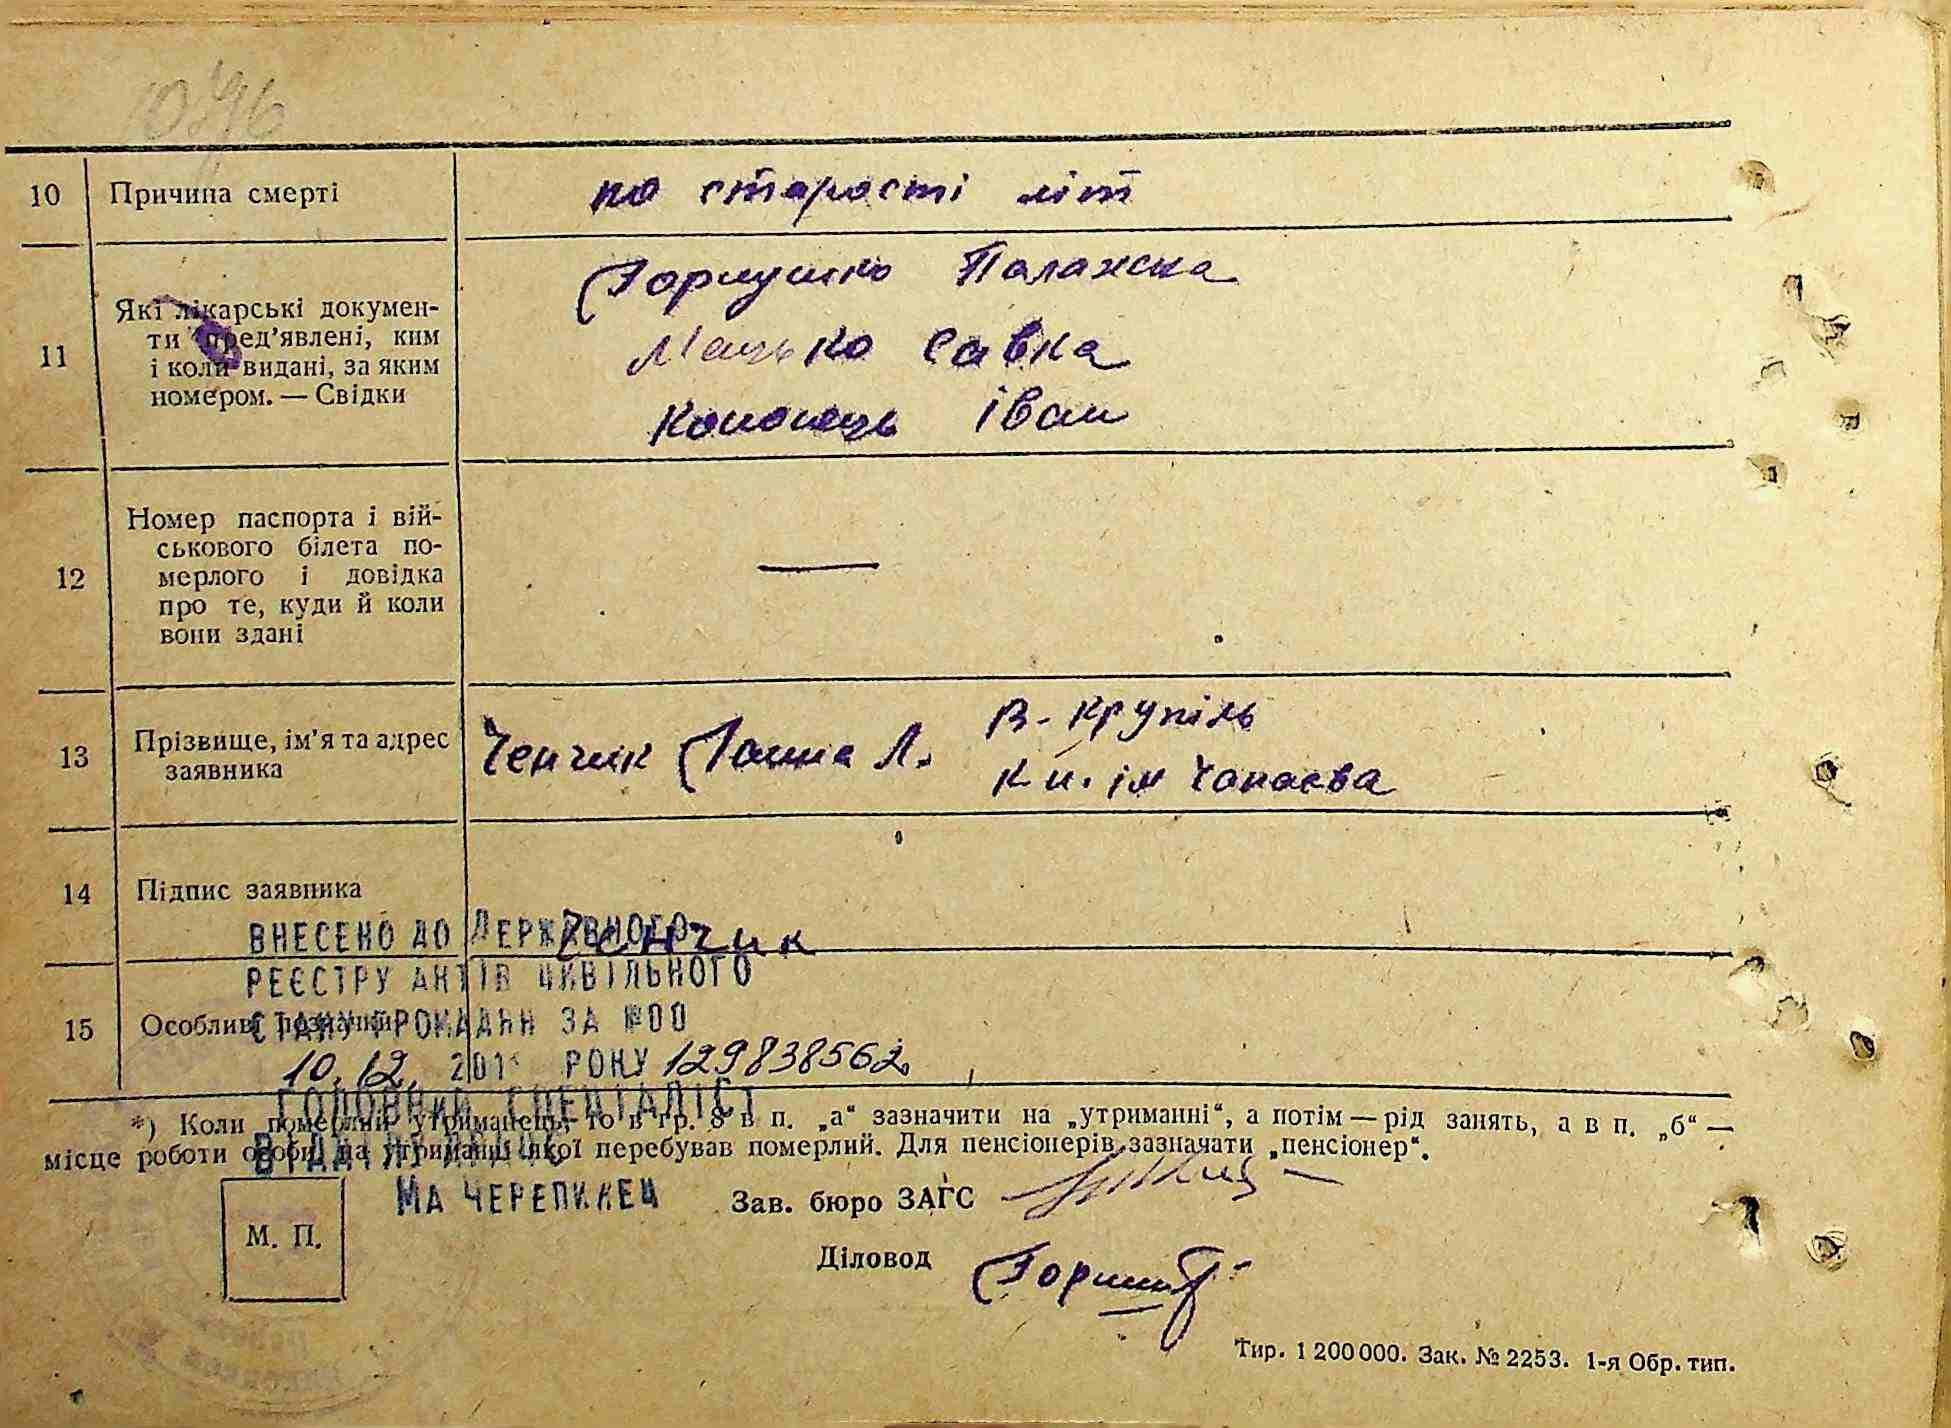 10 Причина смерті по старості літ
11 Які лікарські докумен-
ти пред'явлені, ким
і коли видані, за яким
номером. — Свідки
Горпушко Палажка
Мацько Савка
Кононець Іван
12 Номер паспорта і вій-
ськового білета по-
мерлого і довідка
про те, куди й коли
вони здані
—
13 Прізвище, ім'я та адрес
заявника
Ченчик Ганна Л.
В-Крупіль
К-п. ім Чапаєва
14 Підпис заявника
Ченчик
ВНЕСЕНО ДО ДЕРЖАВНОГО
РЕЄСТРУ АКТІВ ЦИВІЛЬНОГО
15 Особливі позначки
СТАНУ ГРОМАДЯН ЗА №00
10.12. 201 РОКУ 129838562
ГОЛОВНИЙ СПЕЦІАЛІСТ
*) Коли померлий утриманець, то в гр. 8 в п. „а“ зазначити на „утриманні“, а потім — рід занять, а в п. „б“ —
місце роботи особи, на утриманні якої перебував померлий. Для пенсіонерів зазначати „пенсіонер“.
ВІДДІЛУ
МА ЧЕРЕПИНЕЦ
Зав. бюро ЗАГС
М. П.
Діловод
Тир. 1 200 000. Зак. № 2253. 1-я Обр. тип.